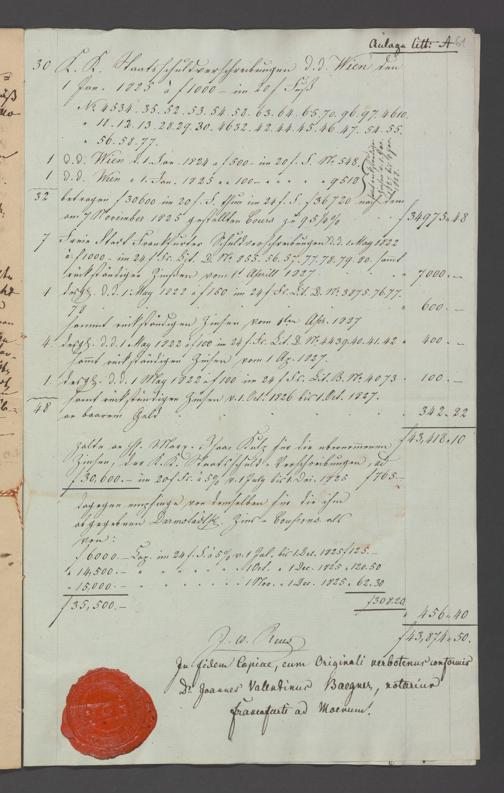 Anlage Litt. A
30 K. K. Staatsschuldverschreibungen d. d. Wien den
1 Jan. 1825 à f 1000 – im 20 f Fuß
No. 4534. 35. 52. 53. 54. 58. 63. 64. 65. 70. 96. 97. 4610.
" 11. 12. 13. 28. 29. 30. 4632. 42. 44. 45. 46. 47. 54. 55.
" 56. 58. 77.
1 d. d. Wien 1 Jan. 1824 à f 500 – im 20 f. F. No. 548.
1 d. d. Wien 1 Jan. 1825 " 100 – 9510
32 betragen f 30600 im 20 f. F. thun im 24 f. F. f 36720 nach dem
am 7 November 1825 gestellten Cours zu 95 1/4 % f 34975 " 48
7 Freie Stadt Frankfurter Schuldverschreibungen d. d. 1 May 1822
à f 1000 – im 24 f Fs. Lit. D. No. 855. 56. 57. 77. 78. 79. 80. samt
rückständigen Zinsen vom 1 Aprill 1827 " 7000. –
1 desgl. d. d. 1 May 1822 à f 150 im 24 f. Fs. Lit. D. No. 3875. 76. 77.
78 " 600. –
sammt rückständigen Zinsen vom 1ten Apr. 1827
4 desgl. d. d. 1 May 1822 à f 100 im 24 f. Fs. Lit. D. No. 4439. 40. 41. 42 " 400. –
samt rückständigen Zinsen vom 1 Ap. 1827.
1 desgl. d. d. 1 May 1822 à f 100 im 24 f. Fs. Lit. B. No. 4073 " 100. –
samt rückständigen Zinsen v. 1. Oct. 1826 bis 1 Oct. 1827.
48 an baarem Geld " 342. 22
f 43,418 " 10
zalte an H. Marx Isaac für die übernommenen
Zinsen, der K. K. Staatsschuld-Verschreibungen, ad
f 30,600. – im 20 f. Fs. à 5% v. 1 July bis 1 Dec. 1825 f 765. –
dagegen empfinge von demselben für die ihm
abgegebenen Darmstädt. Zins-Coupons als
von:
f 6000 – Cap. im 24 f. F. à 5% v. 1 Jul. bis 1 Dec. 1825 f 125. –
" 14,500. – " 1 Oct. " 1 Dec. 1825 " 120. 50
" 15,000. – " 1 Nov. " 1 Dec. 1825 " 62. 30
f 35,500. – f 308. 20
" 456 " 40
f 43,874 " 50.
In fidem Copiae, cum Originali verbotenus conformis
Dr. Joannes Valentinus Baegner, notarius
francofurti ad Moenum.